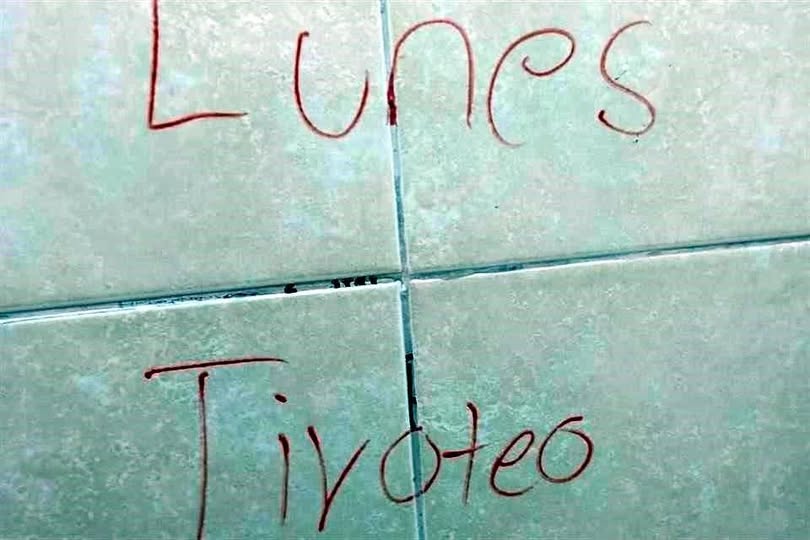 Lunes
Tiroteo